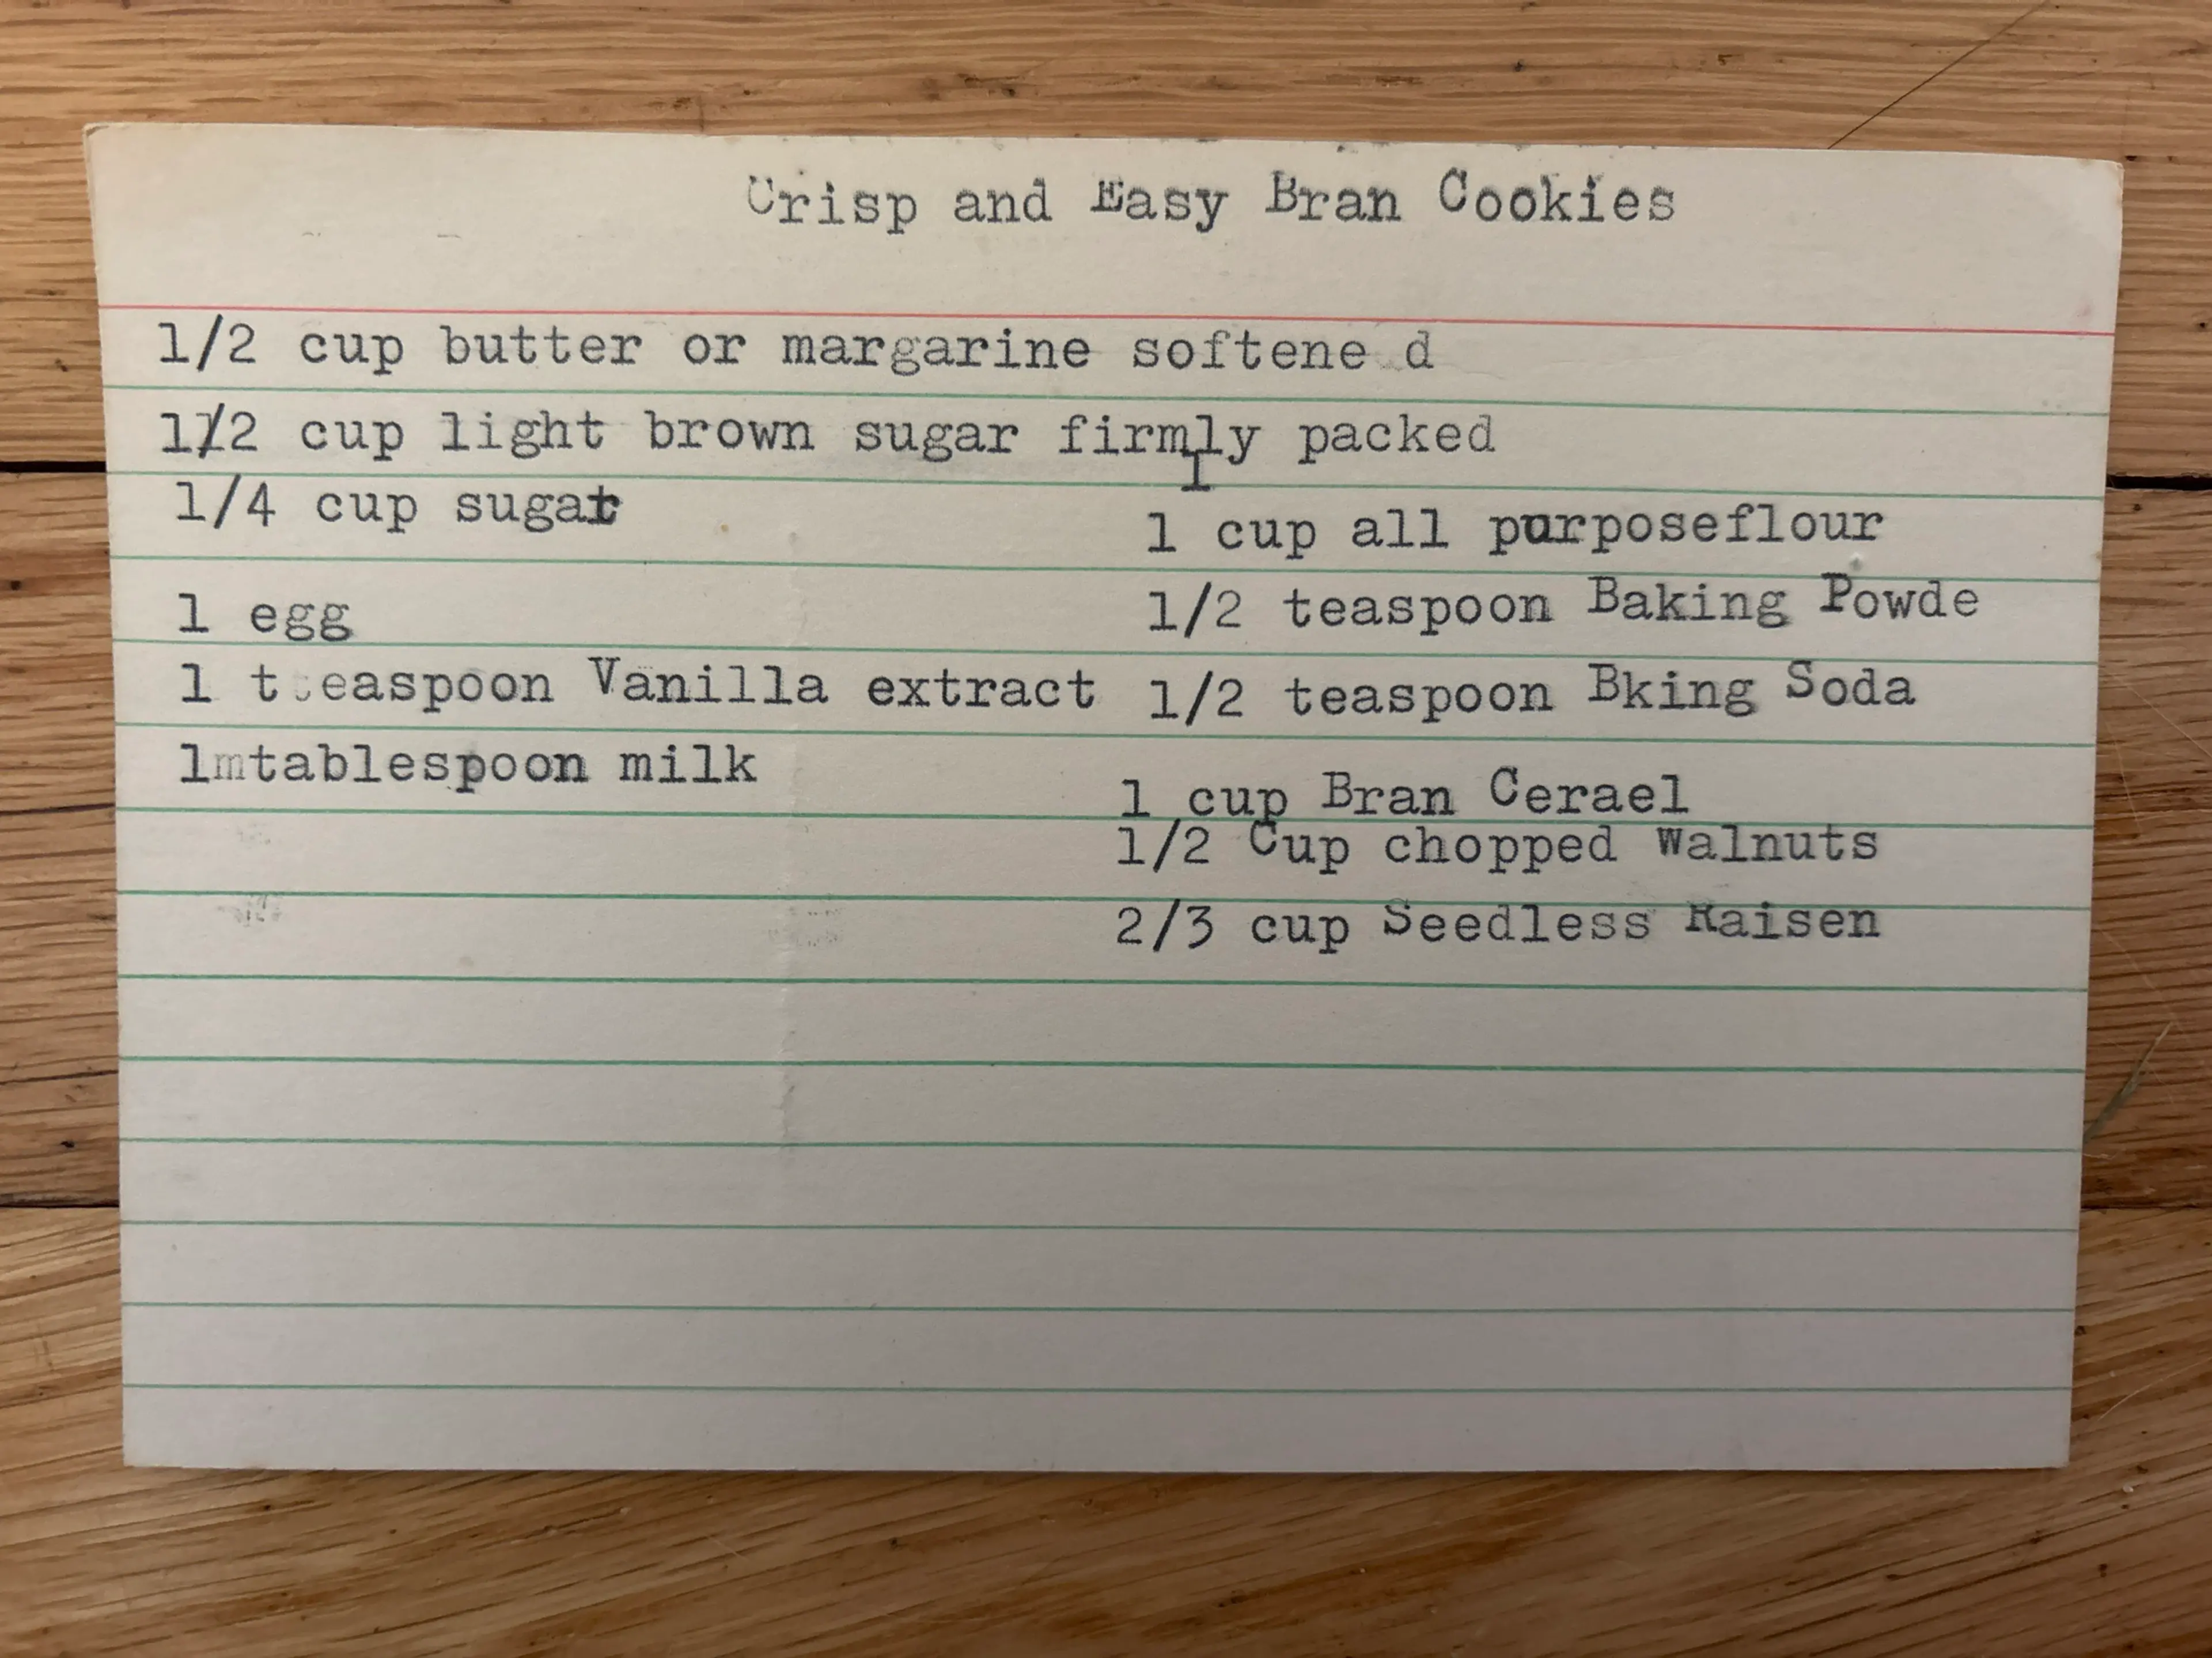 Crisp and Easy Bran Cookies
1/2 cup butter or margarine softene d
1/2 cup light brown sugar firmly packed
I
1/4 cup sugar
1 cup all purposeflour
1 egg
1/2 teaspoon Baking Powde
1 teaspoon Vanilla extract
1/2 teaspoon Bking Soda
1mtablespoon milk
1 cup Bran Cerael
1/2 Cup chopped Walnuts
2/3 cup Seedless Raisen